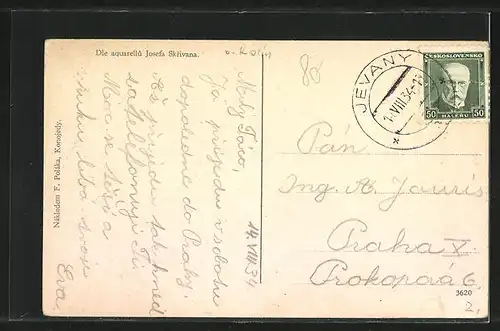 Dle aquarellů Josefa Skřivana.
Nákladem F. Poláka, Konojedy.
Milý Táto,
Já přijedu v sobotu
dopoledne do Prahy.
Až přijedu tak hned
zatelefonuji Ti.
Moc se těší a
líbá Tvoje
Eva.
14.VIII.34
JEVANY
14.VIII.34
ČESKOSLOVENSKO
50 HALÉŘŮ 50
80
Pán
Ing. A. Jouris
Praha X.
Prokopova 6.
3620